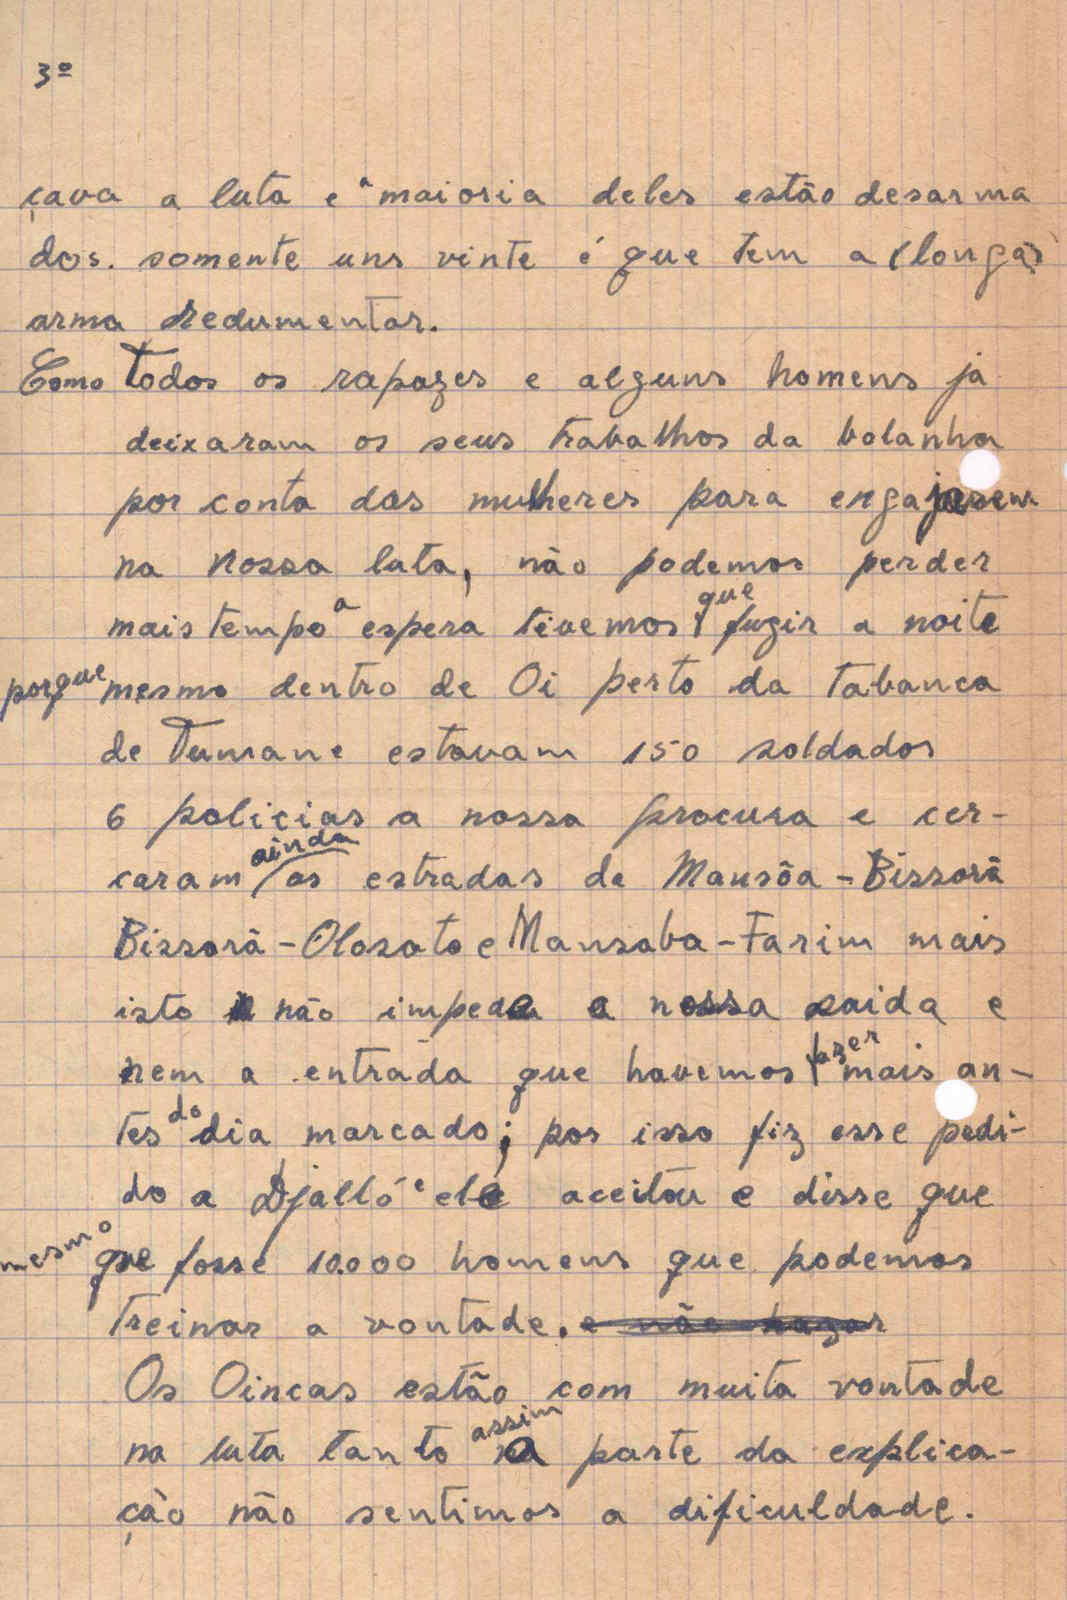 3º
çava a luta e a maioria deles estão desarma
dos. somente uns vinte é que tem a (longa)
arma redumentar.
Como Todos os rapazes e alguns homens ja
deixaram os seus trabalhos da bolanha
por conta das mulheres para engajarem
na nossa luta, não podemos perder
mais tempo a espera tivemos que fugir a noite
porque mesmo dentro de Oi perto da tabanca
de Tumane estavam 150 soldados
6 policias a nossa procura e cer-
caram ainda as estradas de Mansôa - Bissorã
Bissorã - Olossato e Mansaba - Farim mais
isto não impede a nossa saida e
nem a entrada que havemos fazer mais an-
tes do dia marcado; por isso fiz esse pedi-
do a Djalló e ele aceitou e disse que
mesmo que fosse 10.000 homens que podemos
treinar a vontade. e não
Os Oincas estão com muita vontade
na luta tanto assim a parte da explica-
ção não sentimos a dificuldade.